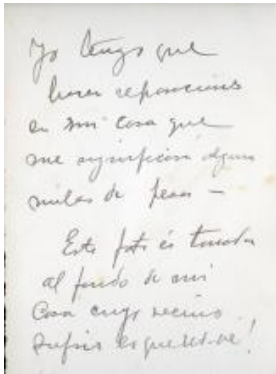 Yo tengo que
hacer reparaciones
en mi casa que
me significan algunos
miles de pesos —
Esta foto es tomada
al fondo de mi
Casa cuyo vecino